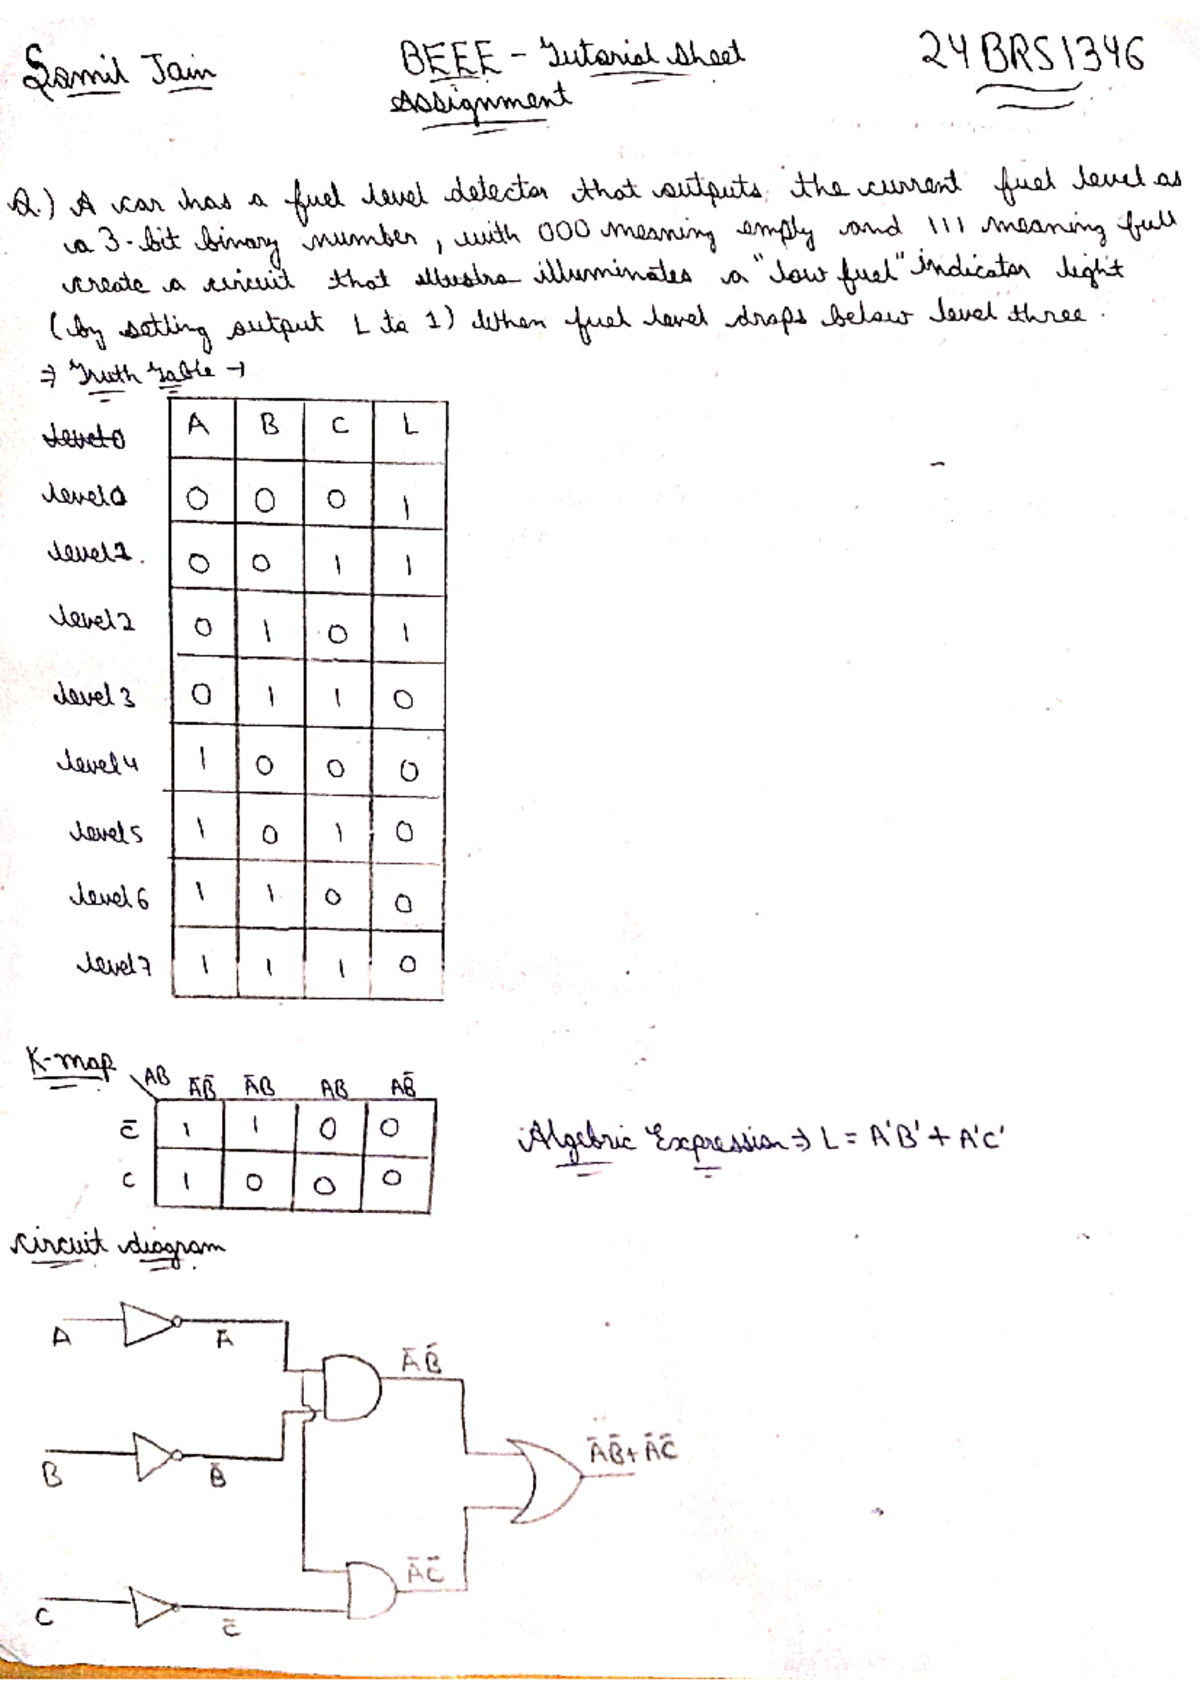 Samil Jain
BEEE - Tutorial Sheet
Assignment
24BRS1346
Q.) A car has a fuel level detector that outputs the current fuel level as
a 3-bit binary number, with 000 meaning empty and 111 meaning full
create a circuit that illuminates a "low fuel" indicator light
(by setting output L to 1) when fuel level drops below level three.
⇒ Truth Table →
A B C L
level 0 0 0 0 1
level 1. 0 0 1 1
level 2 0 1 0 1
level 3 0 1 1 0
level 4 1 0 0 0
level 5 1 0 1 0
level 6 1 1 0 0
level 7 1 1 1 0
K-map
AB A̅B̅ A̅B AB AB̅
C̅ 1 1 0 0
C 1 0 0 0
Algebric Expression ⇒ L = A'B' + A'C'
circuit diagram
A A̅
A̅ B̅
B B̅
A̅B̅+A̅C̅
A̅C̅
C C̅